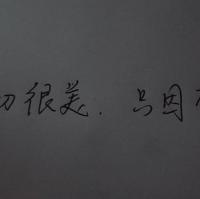 切很美．只因